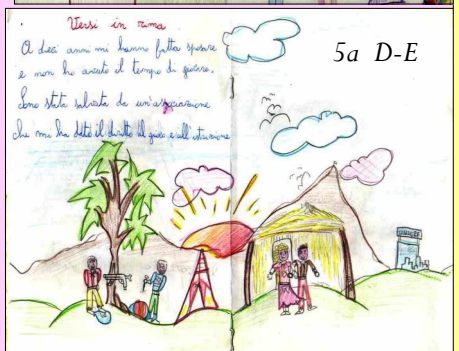 Versi in rima
A dieci anni mi hanno fatta sposare
e non ho avuto il tempo di giocare.
Sono stata salvata da un'associazione
che mi ha dato il diritto al gioco e all'istruzione
5a D-E
UNICEF